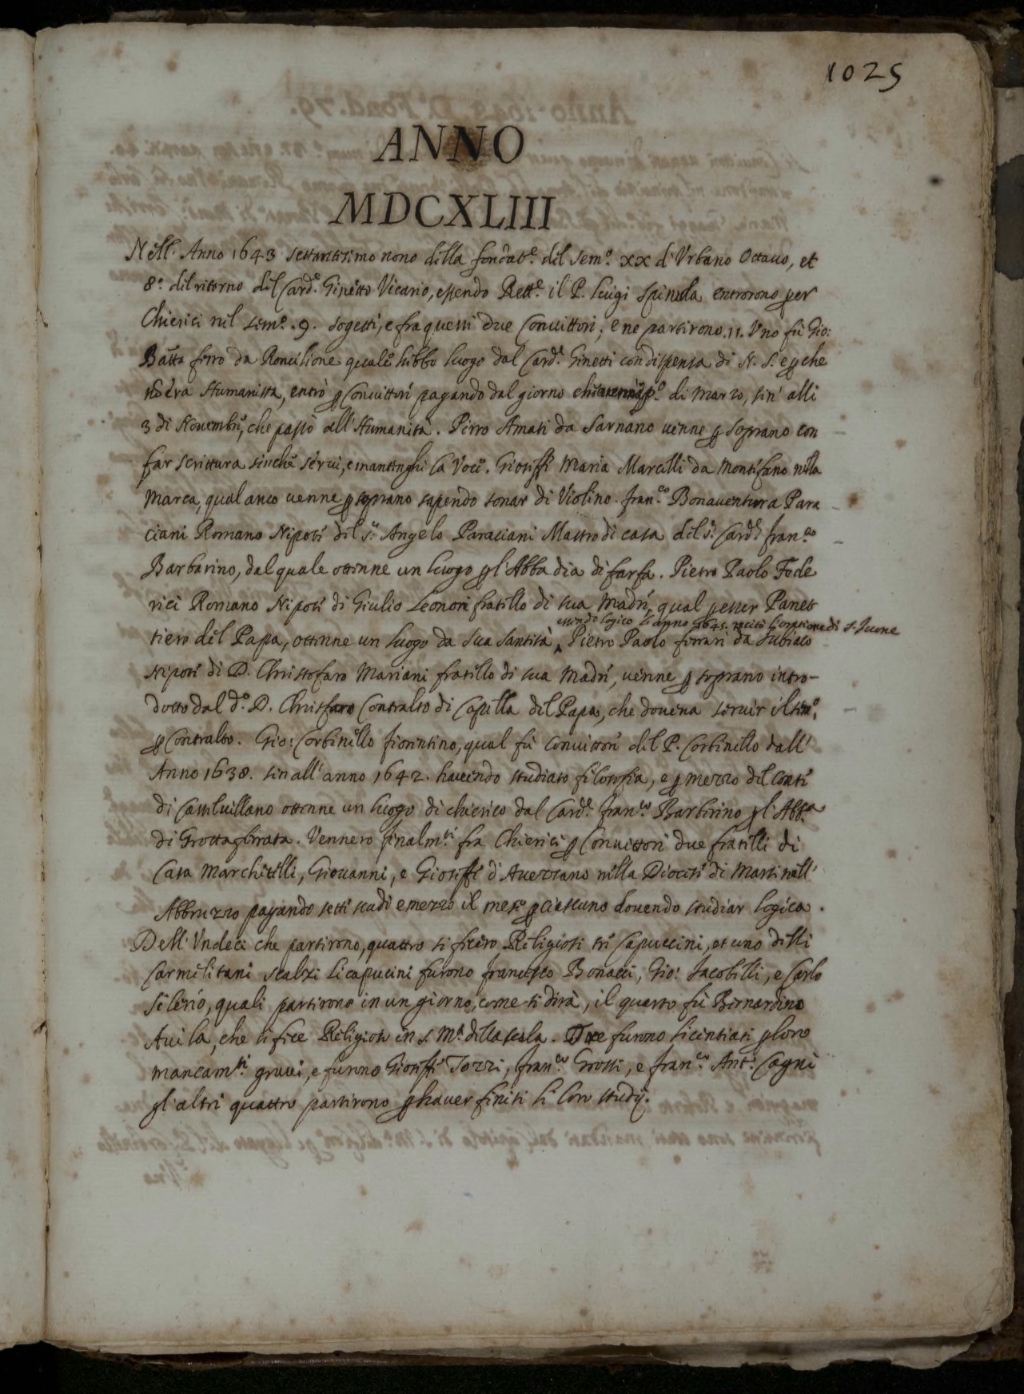 1025
ANNO
MDCXLIII
Nell'Anno 1643 settantesimo nono della fondat.e del Sem.o xx d'Urbano Ottavo, et
8.o del ritorno del Card.e Ginetto Vicario, essendo Rett.e il P. Luigi Spinola entrorono per
Chierici nel sem.o .9. sogetti, e fra questi due Convittori, e ne partirono .11. Uno fù Gio:
Batta ferro da Roncilione quale hebbe luogo dal Card.e Ginetti con dispensa di N. S.e p che
era Humanista, entrò p Convittore pagando dal giorno che di Marzo, sin' alli
3 di Novembre, che passò all'Humanità. Pirro Amati da Sarnano venne p soprano con
far scrittura sinche servi, e mantenghi la voce. Gioseffe Maria Marcelli da Montefano nela
Marca, qual anco venne p soprano sapendo sonar di Violino. fran.co Bonaventura Para
ciani Romano Nipote del S.r Angelo Paraciani Mastro di casa del S.r Card.e fran.co
Barbarino, dal quale ottenne un luogo p l'Abbadia di farfa. Pietro Paolo Fede
rici Romano Nipote di Giulio Leonori fratello di sua Madre, qual p esser Panet
essendo logico l'anno 1645. recitò l'oratione di S. Ivone
tiero del Papa, ottenne un luogo da sua Santità, Pietro Paolo ferrari da Subiaco
Nipote di D. Christofaro Mariani fratello di sua Madre, venne p soprano intro-
dotto dal d.o D. Christofaro Contralto di Capella del Papa, che doveva servir il sem.o
p Contralto. Gio: Corbinello fiorentino, qual fù Convittore del P. Corbinello dall'
Anno 1638. sin all'anno 1642. havendo studiato filosofia, e p mezzo del Conte
di Castelvillano ottenne un luogo di chierico dal Card.e fran.co Barberino p l'Abb.a
di Grottaferrata. Vennero finalm.te fra Chierici p Convittori due fratelli di
Casa Marchitelli, Giovanni, e Gioseffe d'Avezzano nella Diocesi di Marsi nell'
Abbruzzo pagando sette scudi e mezzo il mese p ciascuno dovendo studiar logica.
Dell'Undeci che partirono, quattro si fecero Religiosi tre Capuccini, et uno delli
Carmelitani scalzi li capucini furono francesco Bonacci, Gio: Jacobelli, e Carlo
Silerio, quali partirono in un giorno, come si dirà, il quarto fù Bernardino
Avila, che si fece Religioso in S. M.a della scala. Tre furono licentiati p loro
mancam.ti gravi, e furono Gioseffe Tozzi, fran.co Grossi, e fran.co Ant.o Cagni
gl'altri quattro partirono p haver finiti li loro studij.